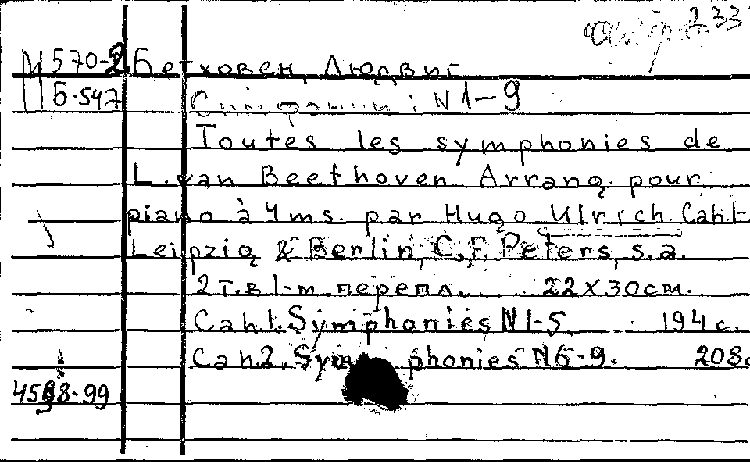 233
М 570-2 Бетховен, Людвиг
Б-547 Симфонии: N 1-9
Toutes les symphonies de
L. van Beethoven Arrang. pour
piano à 4 ms. par Hugo Ulrich. Cah1-
Leipzig & Berlin, C. F. Peters, s.a.
2 т. в 1-м перепл. 22 x 30 см.
Cah.1. Symphonies N 1-5. 194 с.
Cah.2. Symphonies N 6-9. 208с